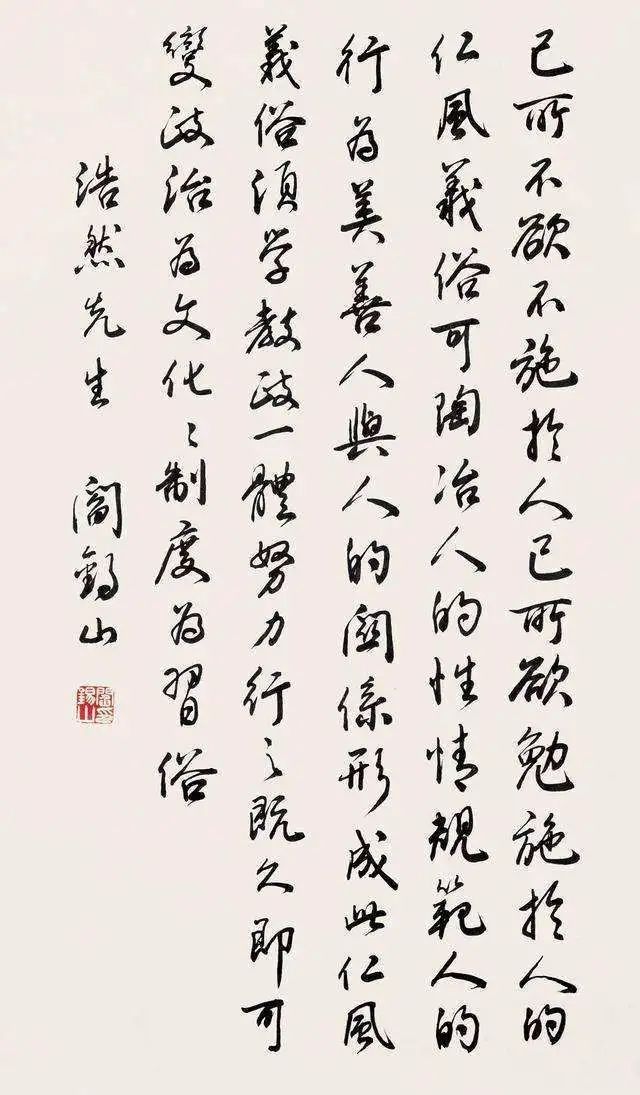 己所不欲不施於人己所欲勉施於人的
仁風義俗可陶冶人的性情規範人的
行為美善人與人的關係形成此仁風
義俗須学教政一體努力行之既久即可
變政治為文化〻制度為習俗
浩然先生 閻錫山
閻錫山印